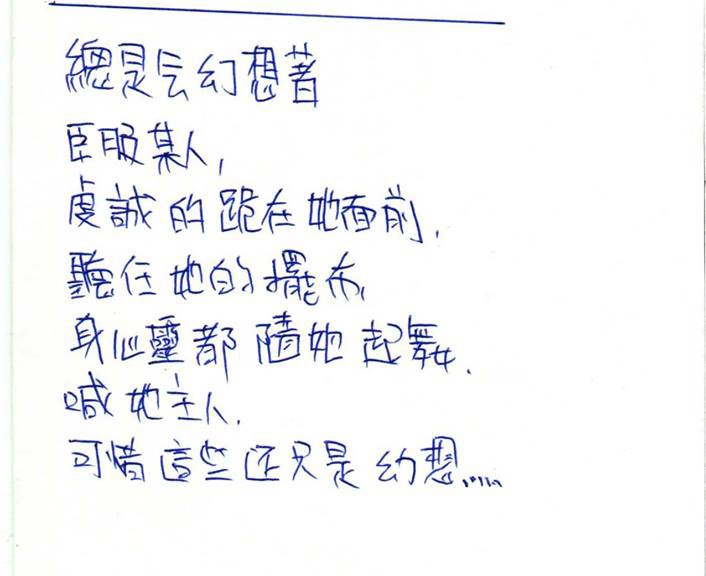 總是会幻想著
臣服某人,
虔誠的跪在她面前,
聽任她的擺布,
身心靈都隨她起舞.
喊她主人.
可惜這些还只是幻想.....